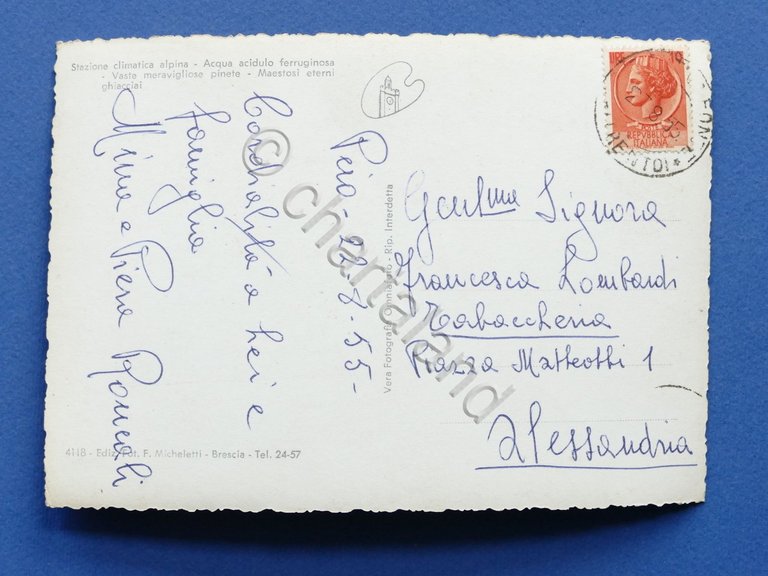 Stazione climatica alpina - Acqua acidulo ferruginosa
- Vaste meravigliose pinete - Maestosi eterni
ghiacciai
Peio - 22-8-55-
Cordialità a Lei e
famiglia
Mina e Piera Roncali
Vera Fotografia - Rip. Interdetta
4118 - Ediz. Fot. F. Micheletti - Brescia - Tel. 24-57
LIRE 10
REPVBBLICA
ITALIANA
(TRENTO)
Gentma Signora
Francesca Lombardi
Tabaccheria
Piazza Matteotti 1
Alessandria
© chartaland